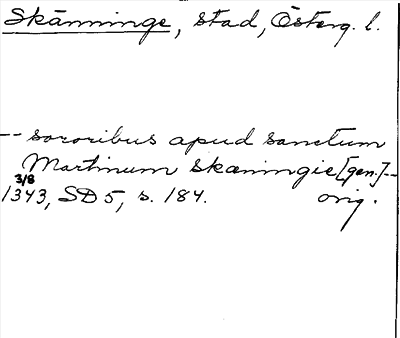 Skänninge, stad, Österg. l.
-- sororibus apud sanctum
Martinum skæningie [gen.] --
3/8
1343, SD 5, s. 184. orig.